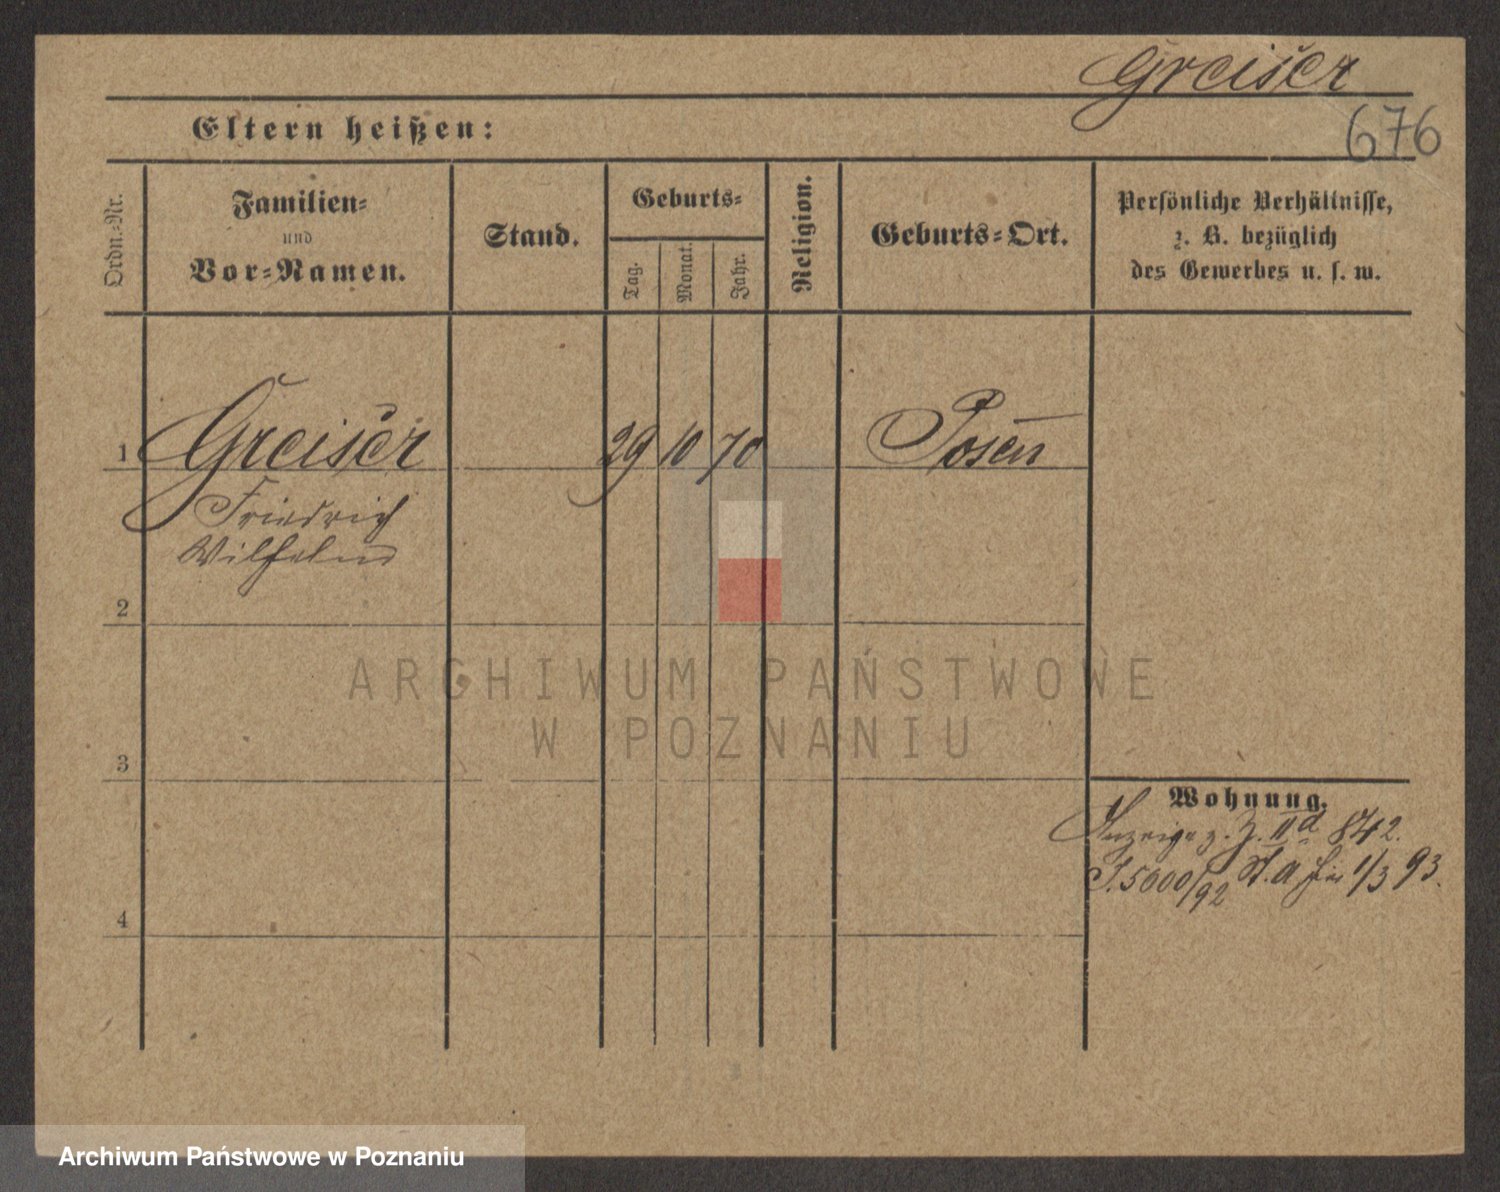 Greiser
676
Eltern heißen:
Ordn.-Nr.
Familien-
und
Vor-Namen.
Stand.
Geburts-
Tag.
Monat.
Jahr.
Religion.
Geburts-Ort.
Persönliche Verhältnisse,
z. B. bezüglich
des Gewerbes u. s. w.
1 Greiser 29 10 70 Posen
Friedrich
Wilhelm
2
3
4
Wohnung.
Anzeige z. II d 842.
J. 5000/92 St. A 1/3 93.
ARCHIWUM PAŃSTWOWE
W POZNANIU
Archiwum Państwowe w Poznaniu